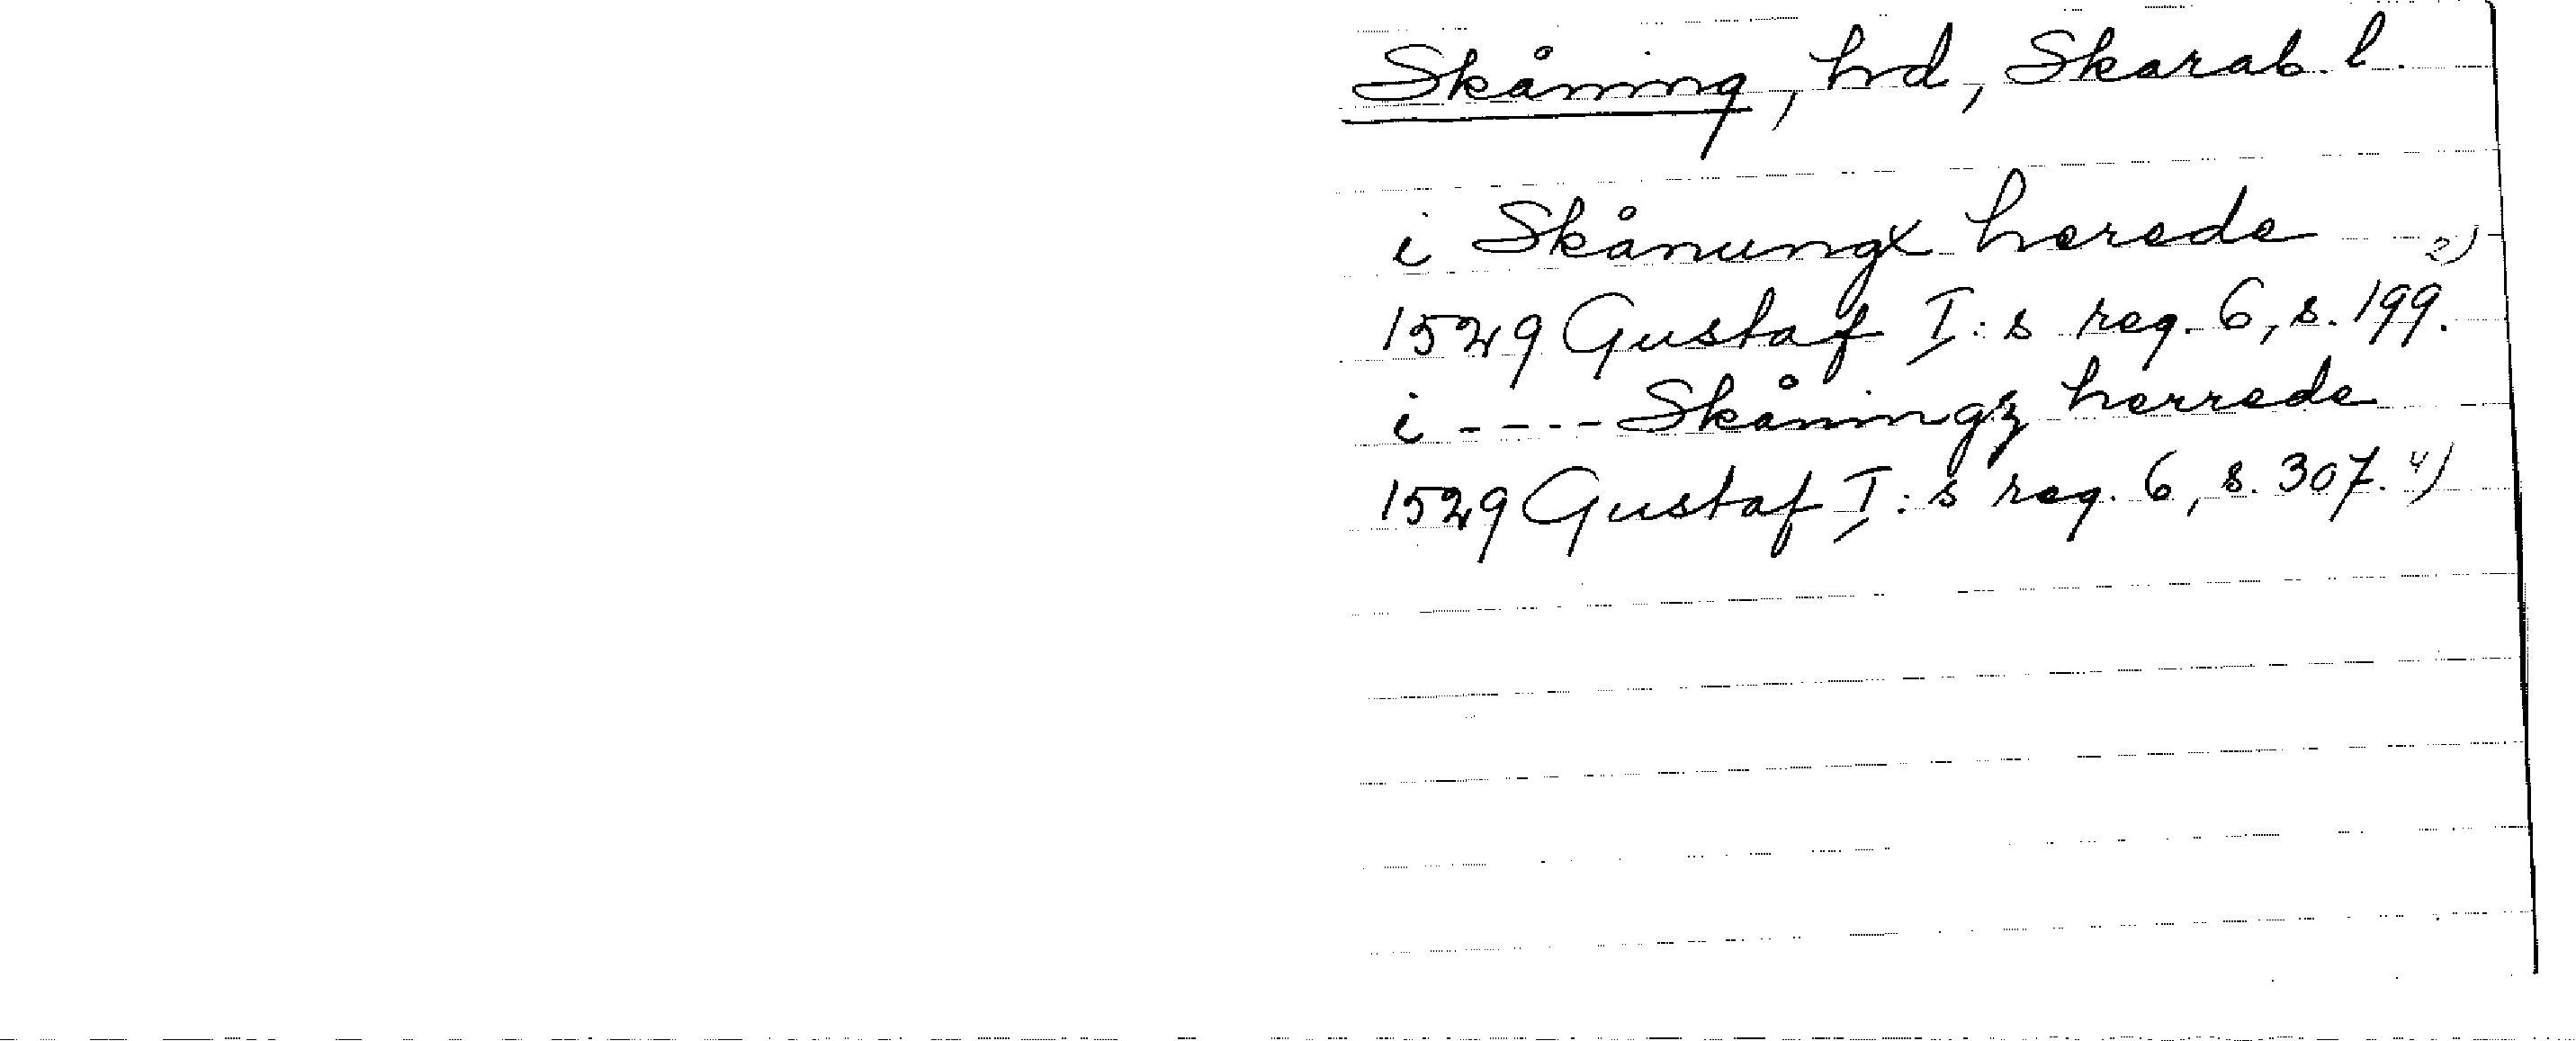 Skåning, hd, Skarab. l.
i Skånungx herede 2)
1529 Gustaf I:s reg. 6, s. 199.
i ---- Skåningz herrede
1529 Gustaf I:s reg. 6, s. 307. 4)